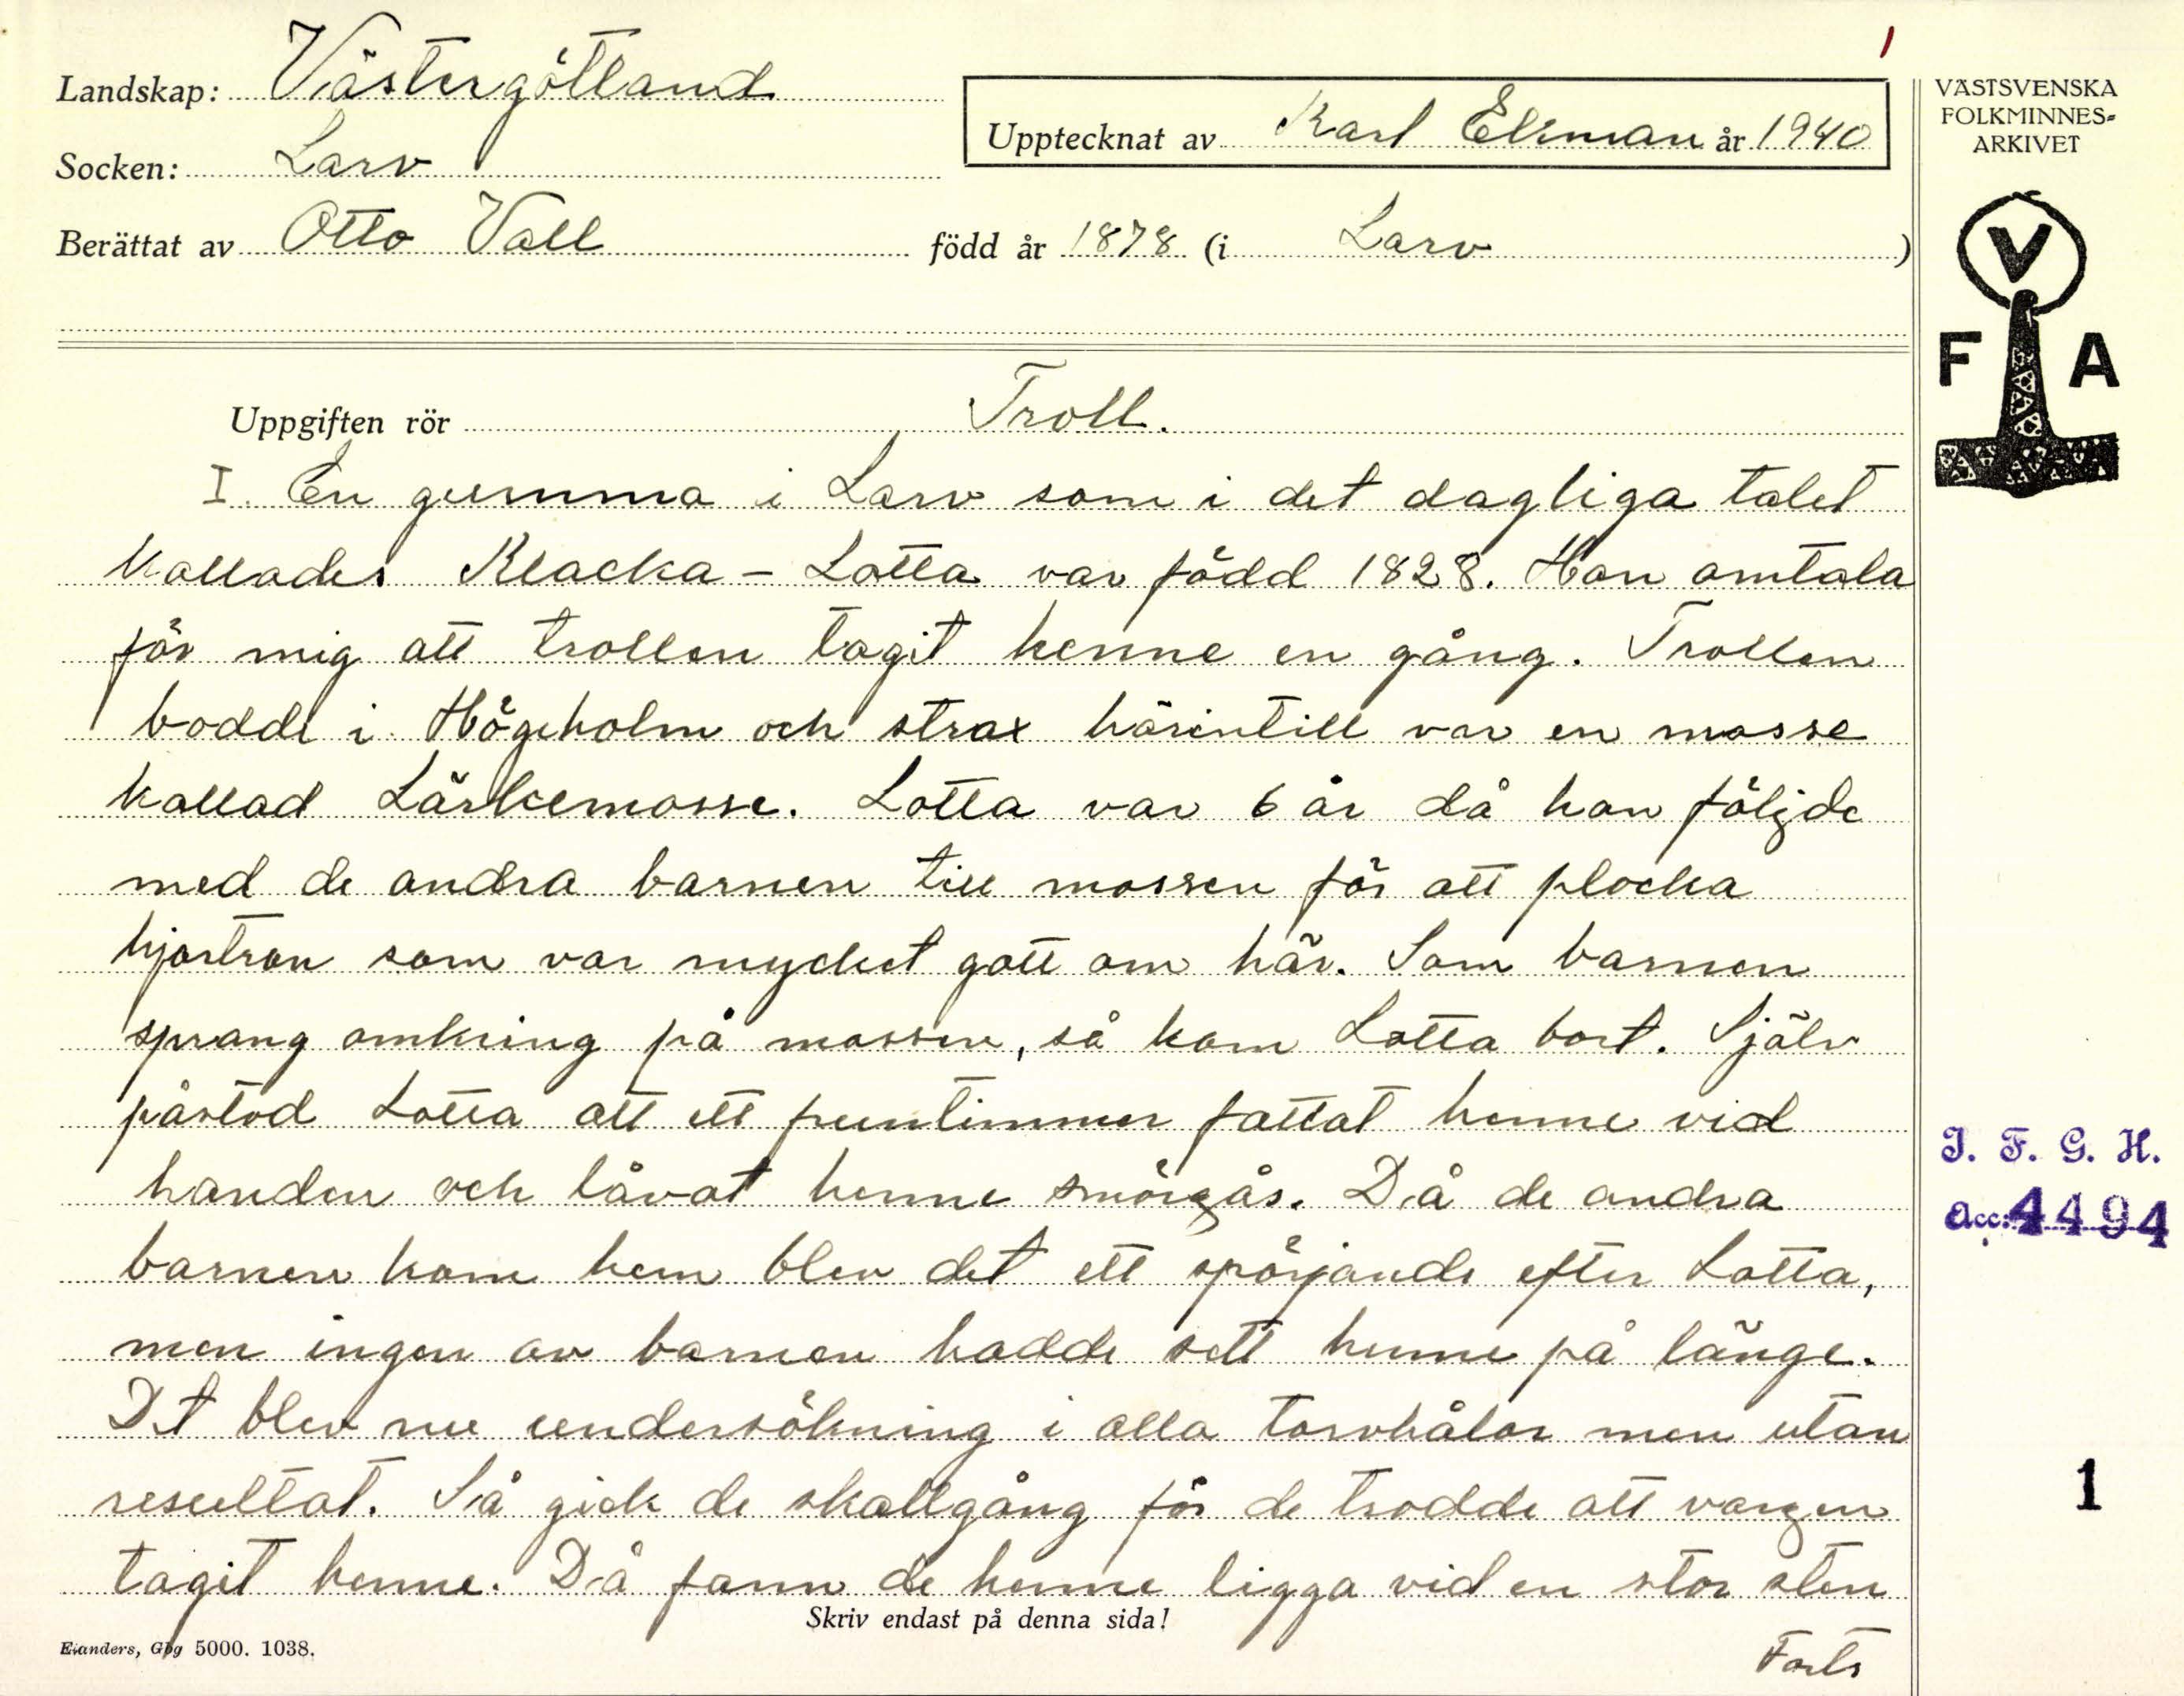 1
Landskap: Västergötland
Upptecknat av Karl Ekman år 1940
VÄSTSVENSKA
FOLKMINNES=
ARKIVET
Socken: Larv
Berättat av Otto Vall född år 1878 (i Larv )
V
F A
Uppgiften rör Troll.
I. En gumma i Larv som i det dagliga talet
kallades Klacka - Lotta var född 1828. Hon omtala
för mig att trollen tagit henne en gång. Trollen
bodde i Högeholm och strax härintill var en mosse
kallad Lärkemosse. Lotta var 6 år då hon följde
med de andra barnen till mossen för att plocka
hjortron som var mycket gott om här. Som barnen
sprang omkring på mossen, så kom Lotta bort. Själv
påstod Lotta att ett fruntimmer fattat henne vid
handen och låvat henne smörgås. Då de andra
barnen kom hem blev det ett spörjande efter Lotta,
men ingen av barnen hadde sett henne på länge.
Det blev nu undersökning i alla torvhålor men utan
resultat. Så gick de skallgång för de trodde att vargen
tagit henne. Då fann de henne ligga vid en stor sten
Skriv endast på denna sida!
Elanders, Gbg 5000. 1038.
Forts
I. F. G. H.
Acc: 4494
1